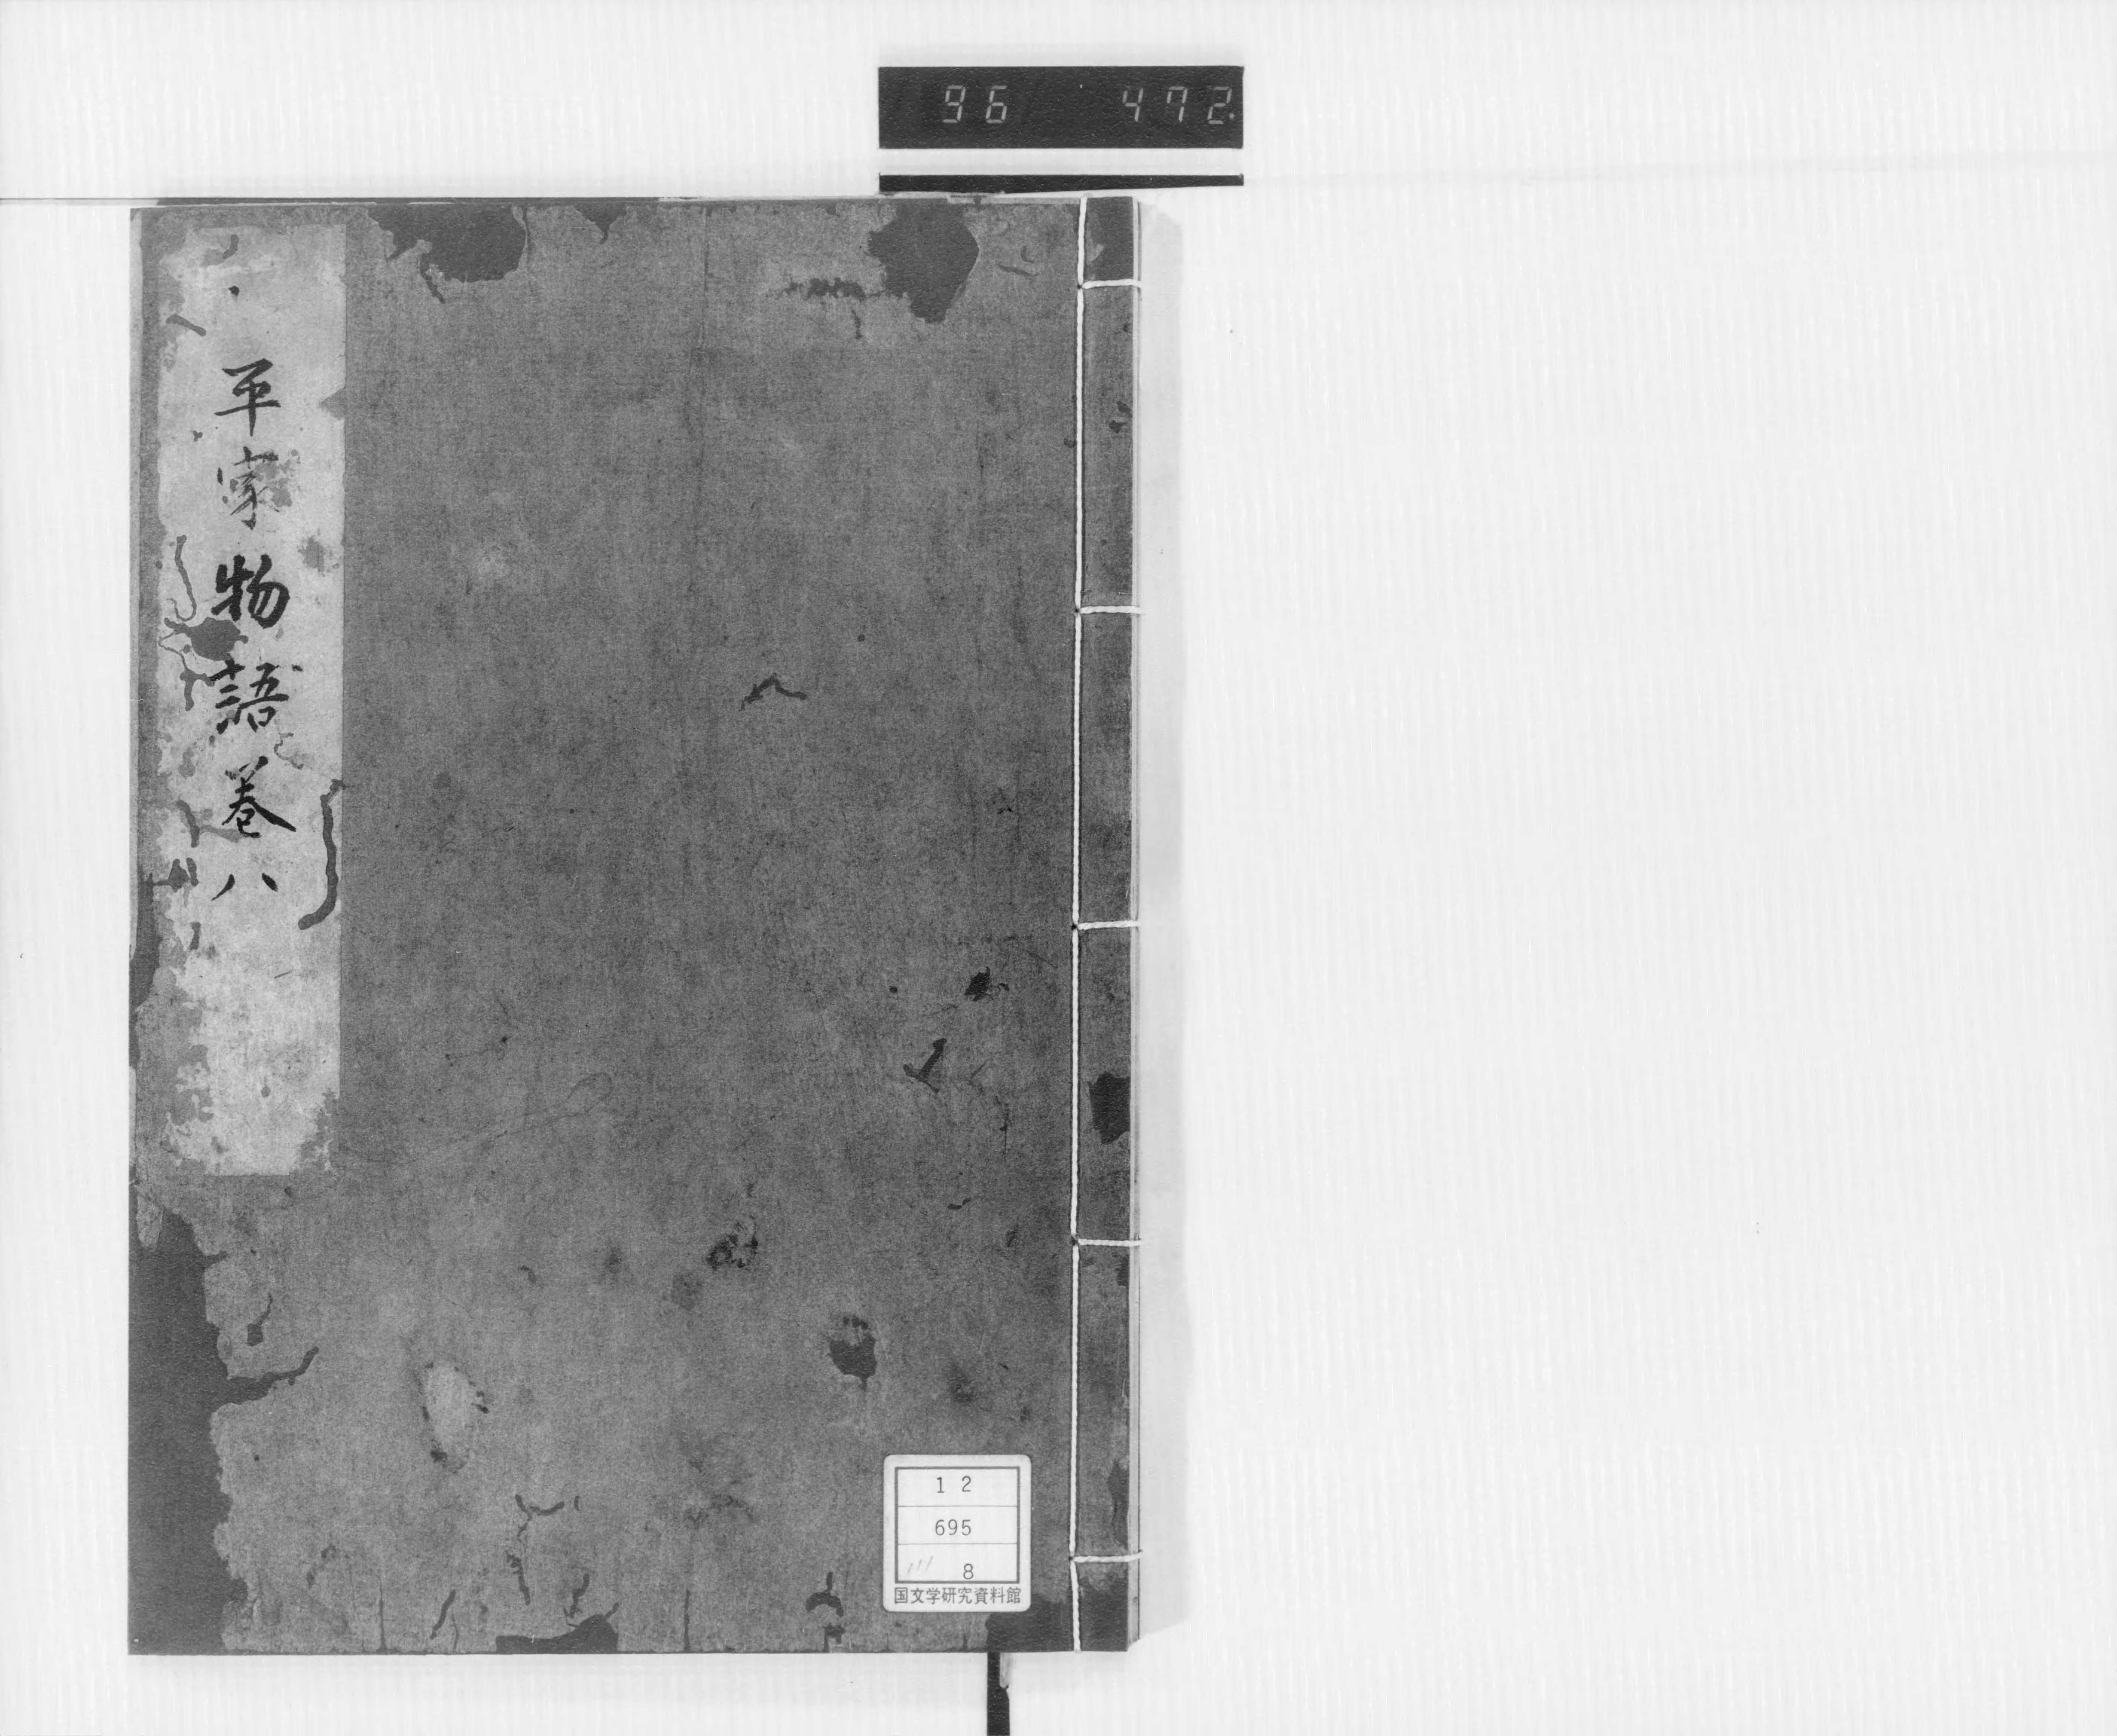 96 472.
平家物語巻八
12
695
8
国文学研究資料館